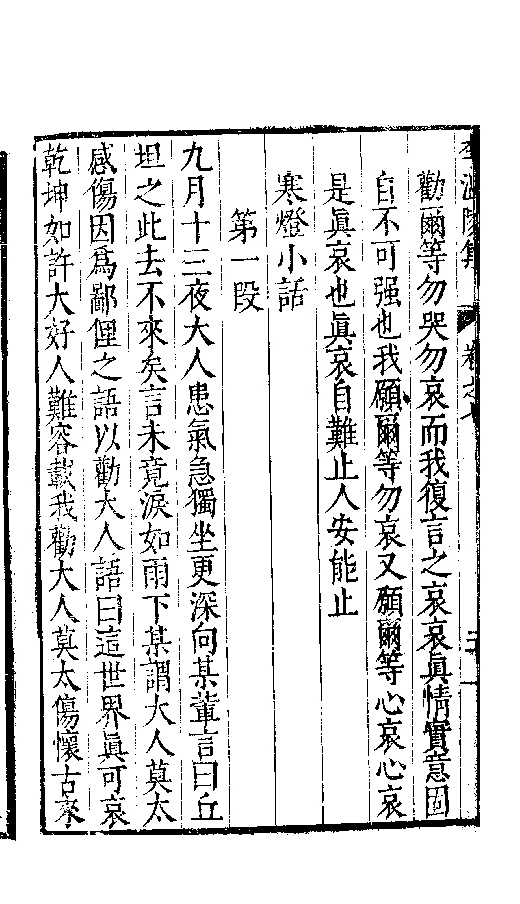 李溫陵集 卷之
勸爾等勿哭勿哀而我復言之哀哀眞情實意固
自不可强也我願爾等勿哀又願爾等心哀心哀
是眞哀也眞哀自難止人安能止
寒燈小話
第一段
九月十三夜大人患氣急獨坐更深向某輩言曰丘
坦之此去不來矣言未竟淚如雨下某謂大人莫太
感傷因爲鄙俚之語以勸大人語曰這世界眞可哀
乾坤如許大好人難容載我勸大人莫太傷懷古來